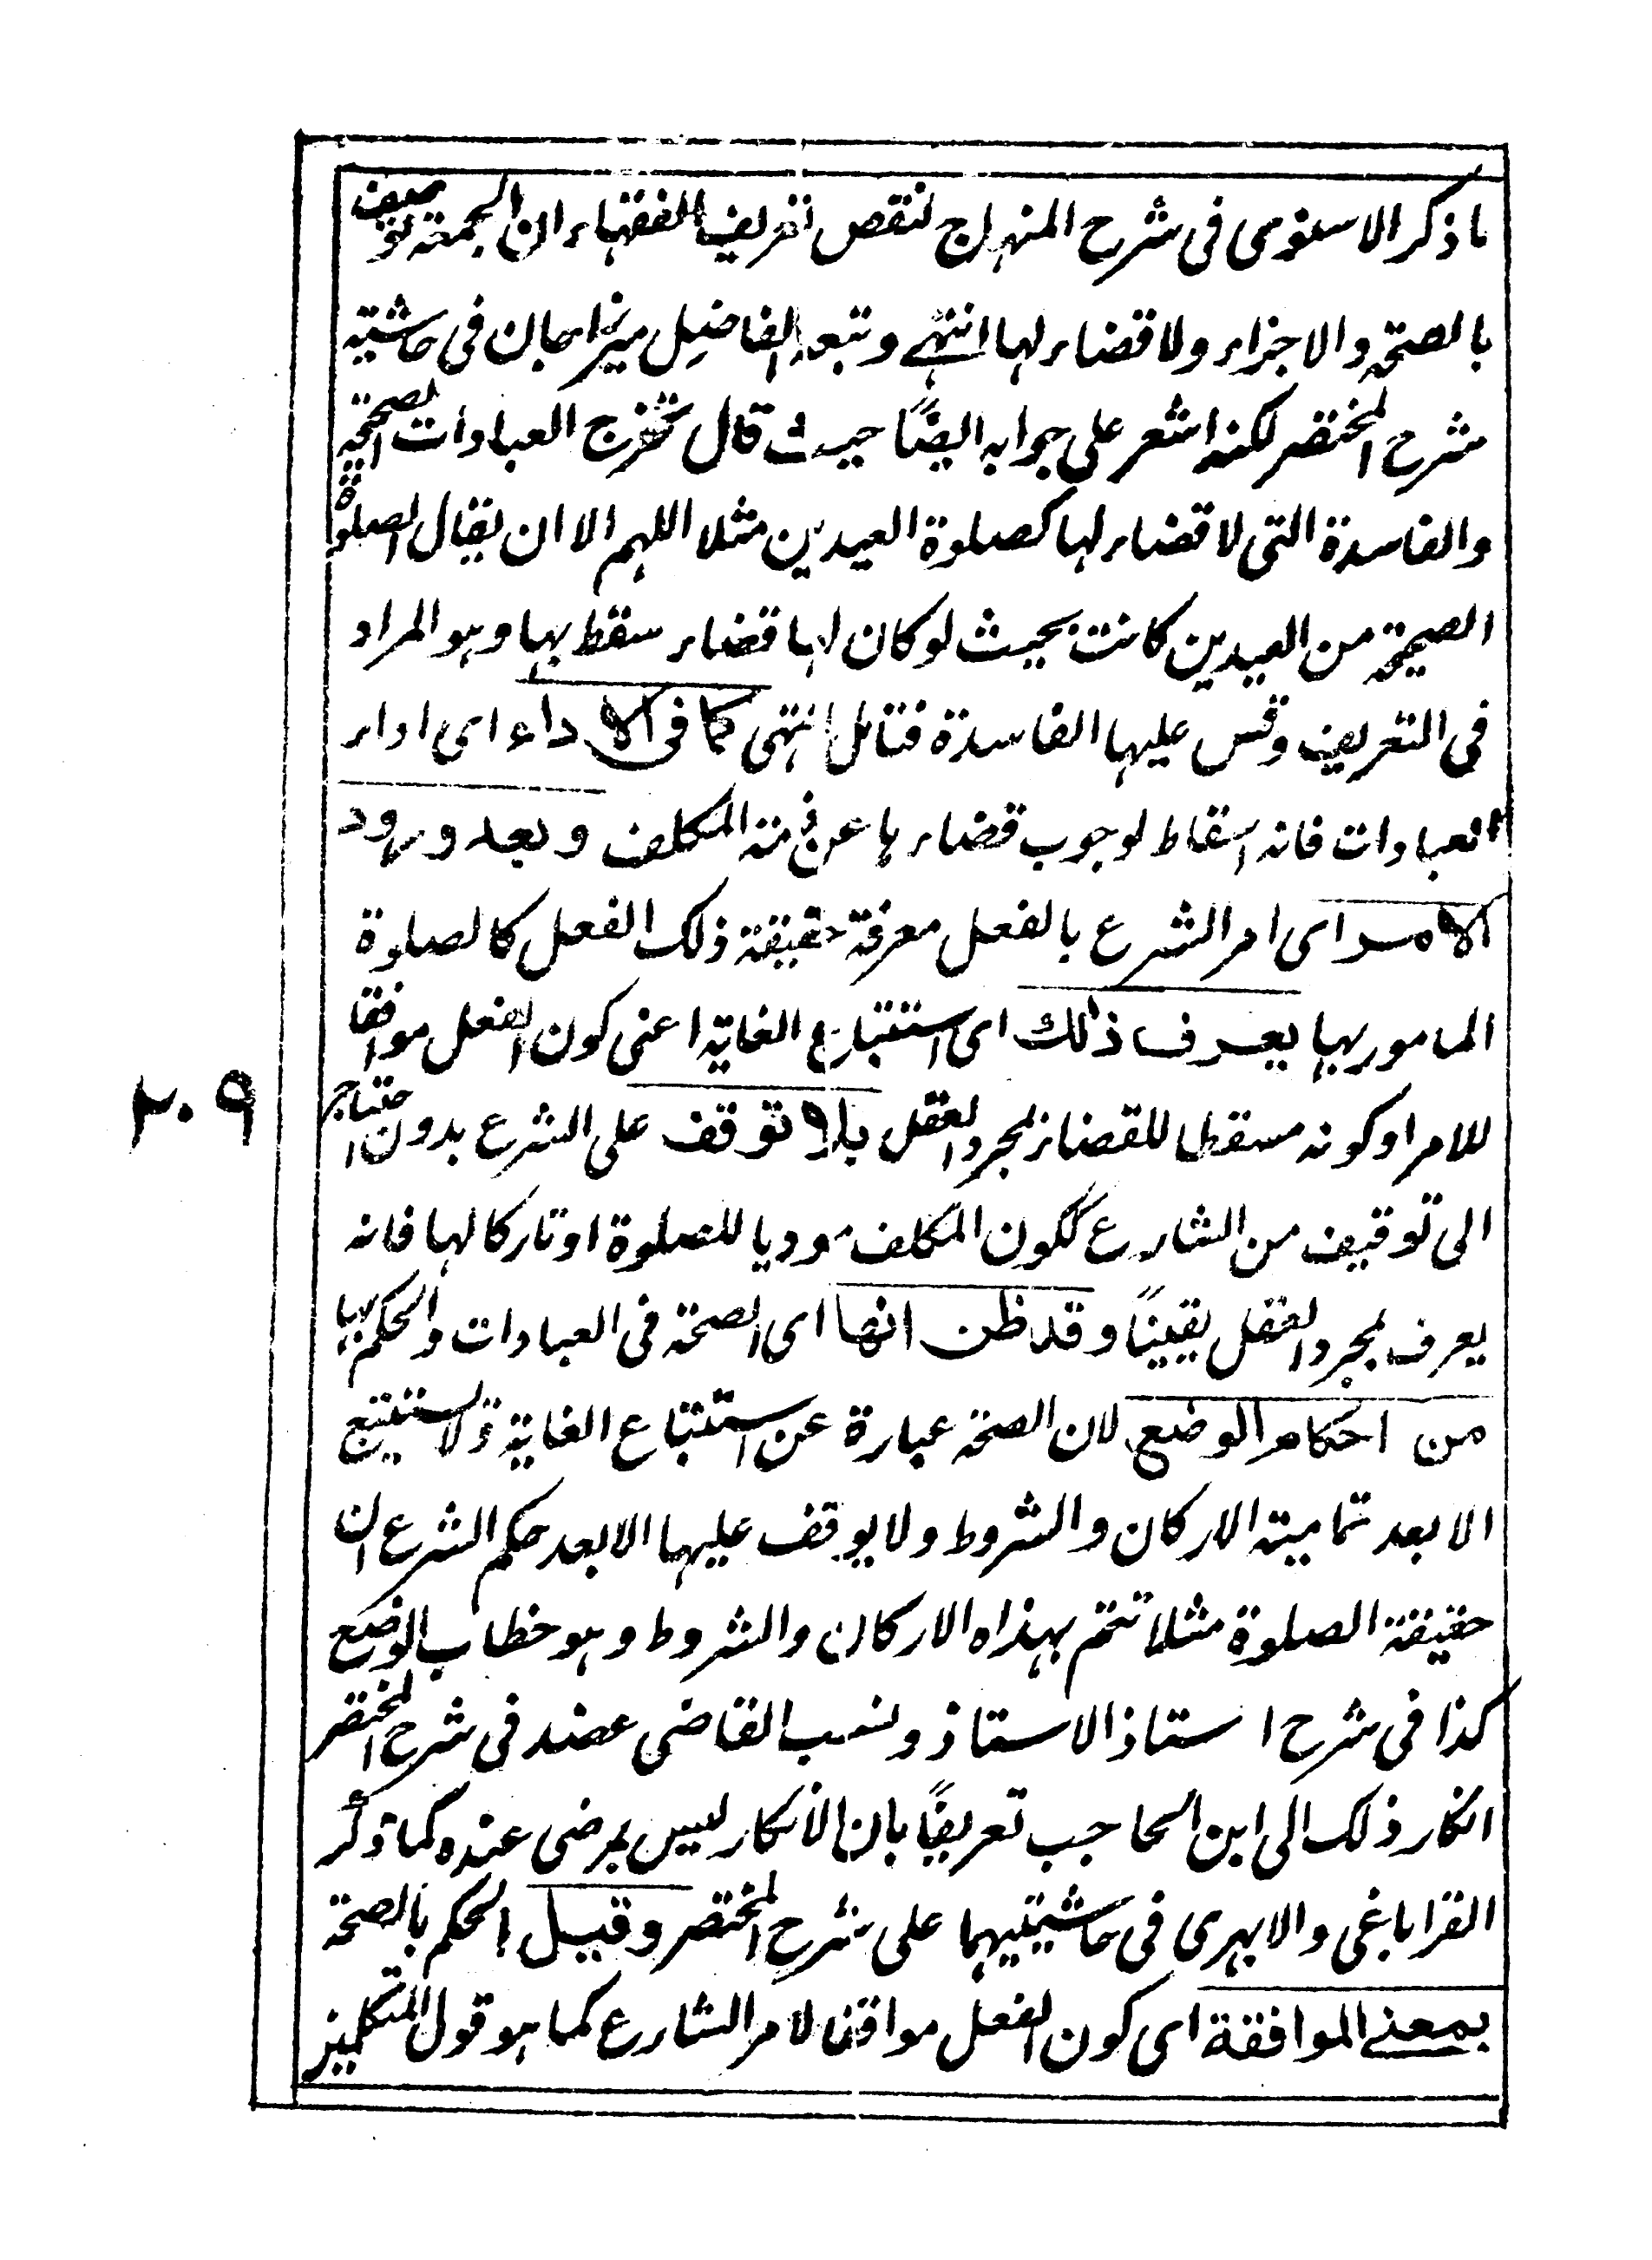 ما ذكر الاسنوى فى شرح المنهاج لنقض تعريف الفقهاء ان الجمعة توصف
بالصحة والاجزاء ولا قضاء لها انتهى وتبعه الفاضل ميرزا جان فى حاشية
شرح المختصر لكنه اشعر على جوابه ايضًا حيث قال تخرج العبادات الصحيحة
والفاسدة التى لا قضاء لها كصلوة العيدين مثلا اللهم الا ان يقال الصلوة
الصحيحة من العيدين كانت بحيث لو كان لها قضاء سقط بها وهو المراد
فى التعريف وقس عليها الفاسدة فتامل انتهى كما فى الاداء اى اداء
العبادات فانه اسقاط لوجوب قضاءها عن ذمة المكلف وبعد ورود
الامر اى امر الشرع بالفعل معرفة حقيقة ذلك الفعل كالصلوة
المامور بها يعرف ذلك اى استتباع الغاية اعنى كون الفعل موافقا
للامر او كونه مسقطا للقضاء بمجرد العقل بلا توقف على الشرع بدون احتياج
الى توقيف من الشارع ككون المكلف موديا للصلوة او تاركا لها فانه
يعرف بمجرد العقل يقينًا وقد ظن انها اى الصحة فى العبادات والحكم بها
من احكام الوضع لان الصحة عبارة عن استتباع الغاية ولا تستتبع
الا بعد تمامية الاركان والشروط ولا يوقف عليها الا بعد حكم الشرع ان
حقيقة الصلوة مثلا تتم بهذاه الاركان والشروط وهو خطاب الوضع
كذا فى شرح استاذ الاستاذ ونسب القاضى عضد فى شرح المختصر
انكار ذلك الى ابن الحاجب تعريفًا بان الانكار ليس بمرضى عنده كما ذكر
القراباغى والابهرى فى حاشيتيهما على شرح المختصر وقيل الحكم بالصحة
بمعنى الموافقة اى كون الفعل موافقا لامر الشارع كما هو قول المتكلمين
٢٠٩